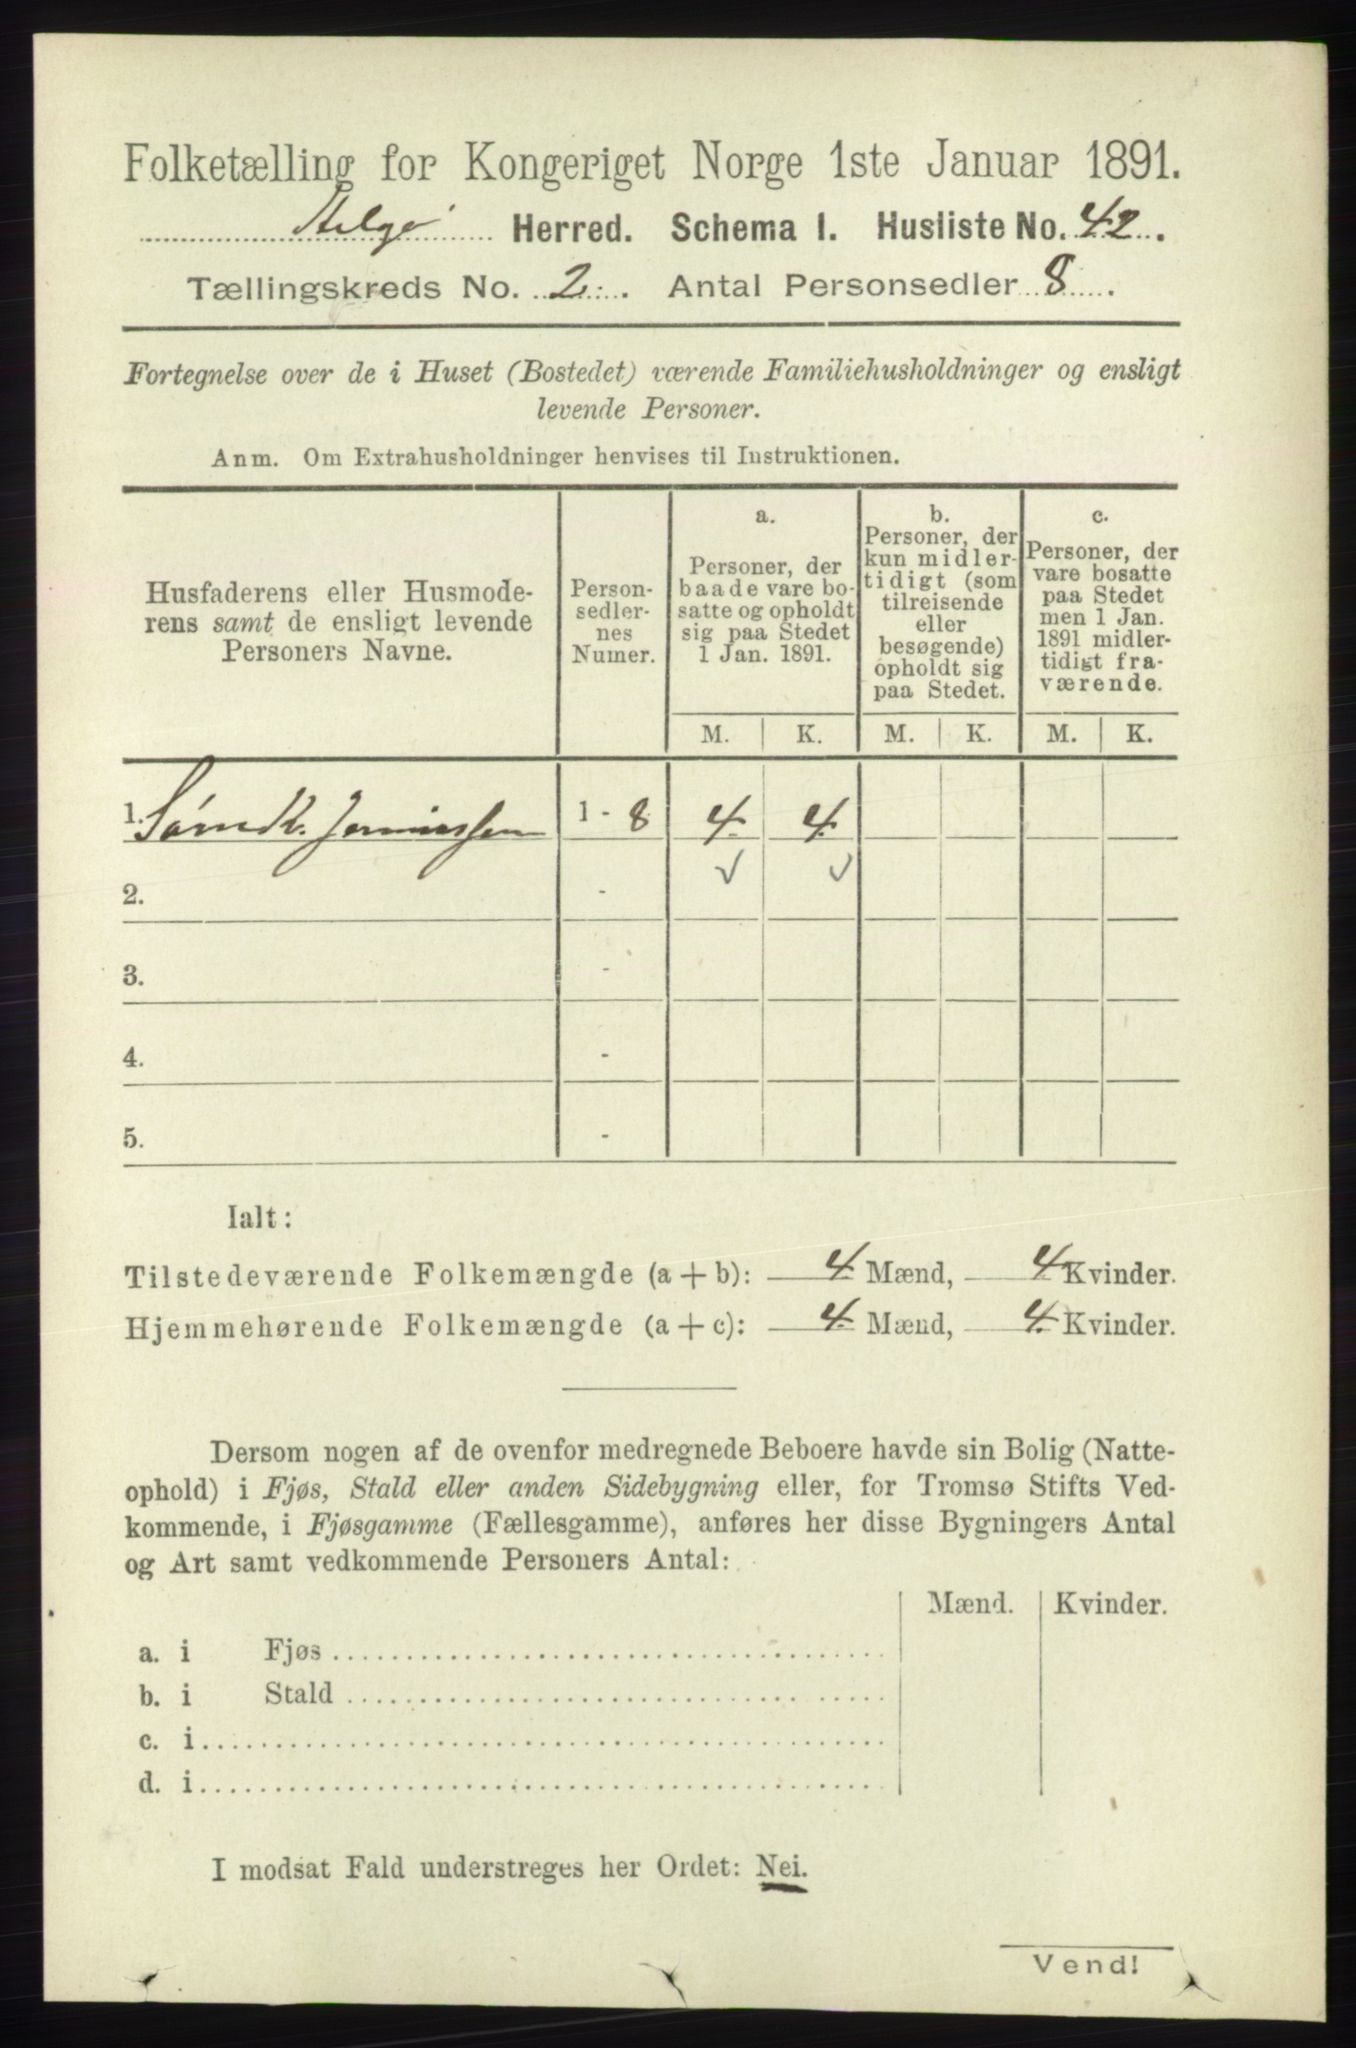 Folketælling for Kongeriget Norge 1ste Januar 1891.
Helgø Herred. Schema I. Husliste No. 42.
Tællingskreds No. 2. Antal Personsedler 8.
Fortegnelse over de i Huset (Bostedet) værende Familiehusholdninger og ensligt
levende Personer.
Anm. Om Extrahusholdninger henvises til Instruktionen.
Husfaderens eller Husmode-
rens samt de ensligt levende
Personers Navne.
Person-
sedler-
nes
Numer.
a.
Personer, der
baade vare bo-
satte og opholdt
sig paa Stedet
1 Jan. 1891.
b.
Personer, der
kun midler-
tidigt (som
tilreisende
eller
besøgende)
opholdt sig
paa Stedet.
c.
Personer, der
vare bosatte
paa Stedet
men 1 Jan.
1891 midler-
tidigt fra-
værende.
M. K. M. K. M. K.
1. K. 1 - 8 4. 4.
2. -
3. -
4. -
5. -
Ialt:
Tilstedeværende Folkemængde (a + b): 4. Mænd, 4 Kvinder.
Hjemmehørende Folkemængde (a + c): 4. Mænd, 4. Kvinder.
Dersom nogen af de ovenfor medregnede Beboere havde sin Bolig (Natte-
ophold) i Fjøs, Stald eller anden Sidebygning eller, for Tromsø Stifts Ved-
kommende, i Fjøsgamme (Fællesgamme), anføres her disse Bygningers Antal
og Art samt vedkommende Personers Antal:
Mænd. Kvinder.
a. i Fjøs
b. i Stald
c. i
d. i
I modsat Fald understreges her Ordet: Nei.
Vend!